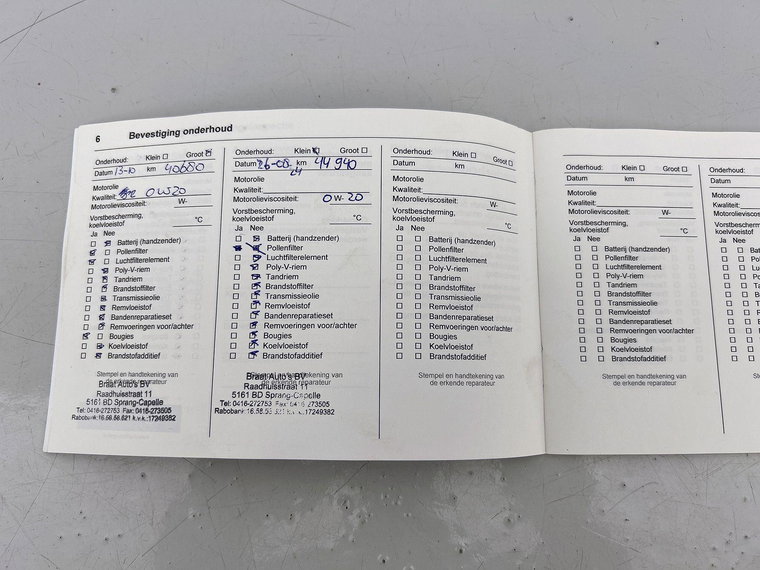 6 Bevestiging onderhoud
Onderhoud: Klein ☐ Groot ☑
Datum 13-10 km 40680
Motorolie
Kwaliteit: 0W20
Motorolieviscositeit: W-
Vorstbescherming,
koelvloeistof °C
Ja Nee
Batterij (handzender)
Pollenfilter
Luchtfilterelement
Poly-V-riem
Tandriem
Brandstoffilter
Transmissieolie
Remvloeistof
Bandenreparatieset
Remvoeringen voor/achter
Bougies
Koelvloeistof
Brandstofadditief
Stempel en handtekening van
de erkende reparateur
Braat Auto's BV
Raadhuisstraat 11
5161 BD Sprang-Capelle
Tel: 0416-272753 Fax: 0416-273505
Rabobank:16.58.58.621 k.v.k.:17249382
Onderhoud: Klein ☑ Groot ☐
Datum 26-08- km 44940
24
Motorolie
Kwaliteit:
Motorolieviscositeit: 0 W- 20
Vorstbescherming,
koelvloeistof °C
Ja Nee
Batterij (handzender)
Pollenfilter
Luchtfilterelement
Poly-V-riem
Tandriem
Brandstoffilter
Transmissieolie
Remvloeistof
Bandenreparatieset
Remvoeringen voor/achter
Bougies
Koelvloeistof
Brandstofadditief
Stempel en handtekening van
de erkende reparateur
Braat Auto's BV
Raadhuisstraat 11
5161 BD Sprang-Capelle
Tel: 0416-272753 Fax: 0416-273505
k.v.k.:17249382
Onderhoud: Klein ☐ Groot ☐
Datum km
Motorolie
Kwaliteit:
Motorolieviscositeit: W-
Vorstbescherming,
koelvloeistof °C
Ja Nee
Batterij (handzender)
Pollenfilter
Luchtfilterelement
Poly-V-riem
Tandriem
Brandstoffilter
Transmissieolie
Remvloeistof
Bandenreparatieset
Remvoeringen voor/achter
Bougies
Koelvloeistof
Brandstofadditief
Stempel en handtekening van
de erkende reparateur
Onderhoud: Klein ☐ Groot ☐
Datum km
Motorolie
Kwaliteit:
Motorolieviscositeit: W-
Vorstbescherming,
koelvloeistof °C
Ja Nee
Batterij (handzender)
Pollenfilter
Luchtfilterelement
Poly-V-riem
Tandriem
Brandstoffilter
Transmissieolie
Remvloeistof
Bandenreparatieset
Remvoeringen voor/achter
Bougies
Koelvloeistof
Brandstofadditief
Stempel en handtekening van
de erkende reparateur
Onderhoud:
Datum
Motorolie
Kwaliteit:
Motorolieviscos
Vorstbescherming
koelvloeistof
Ja Nee